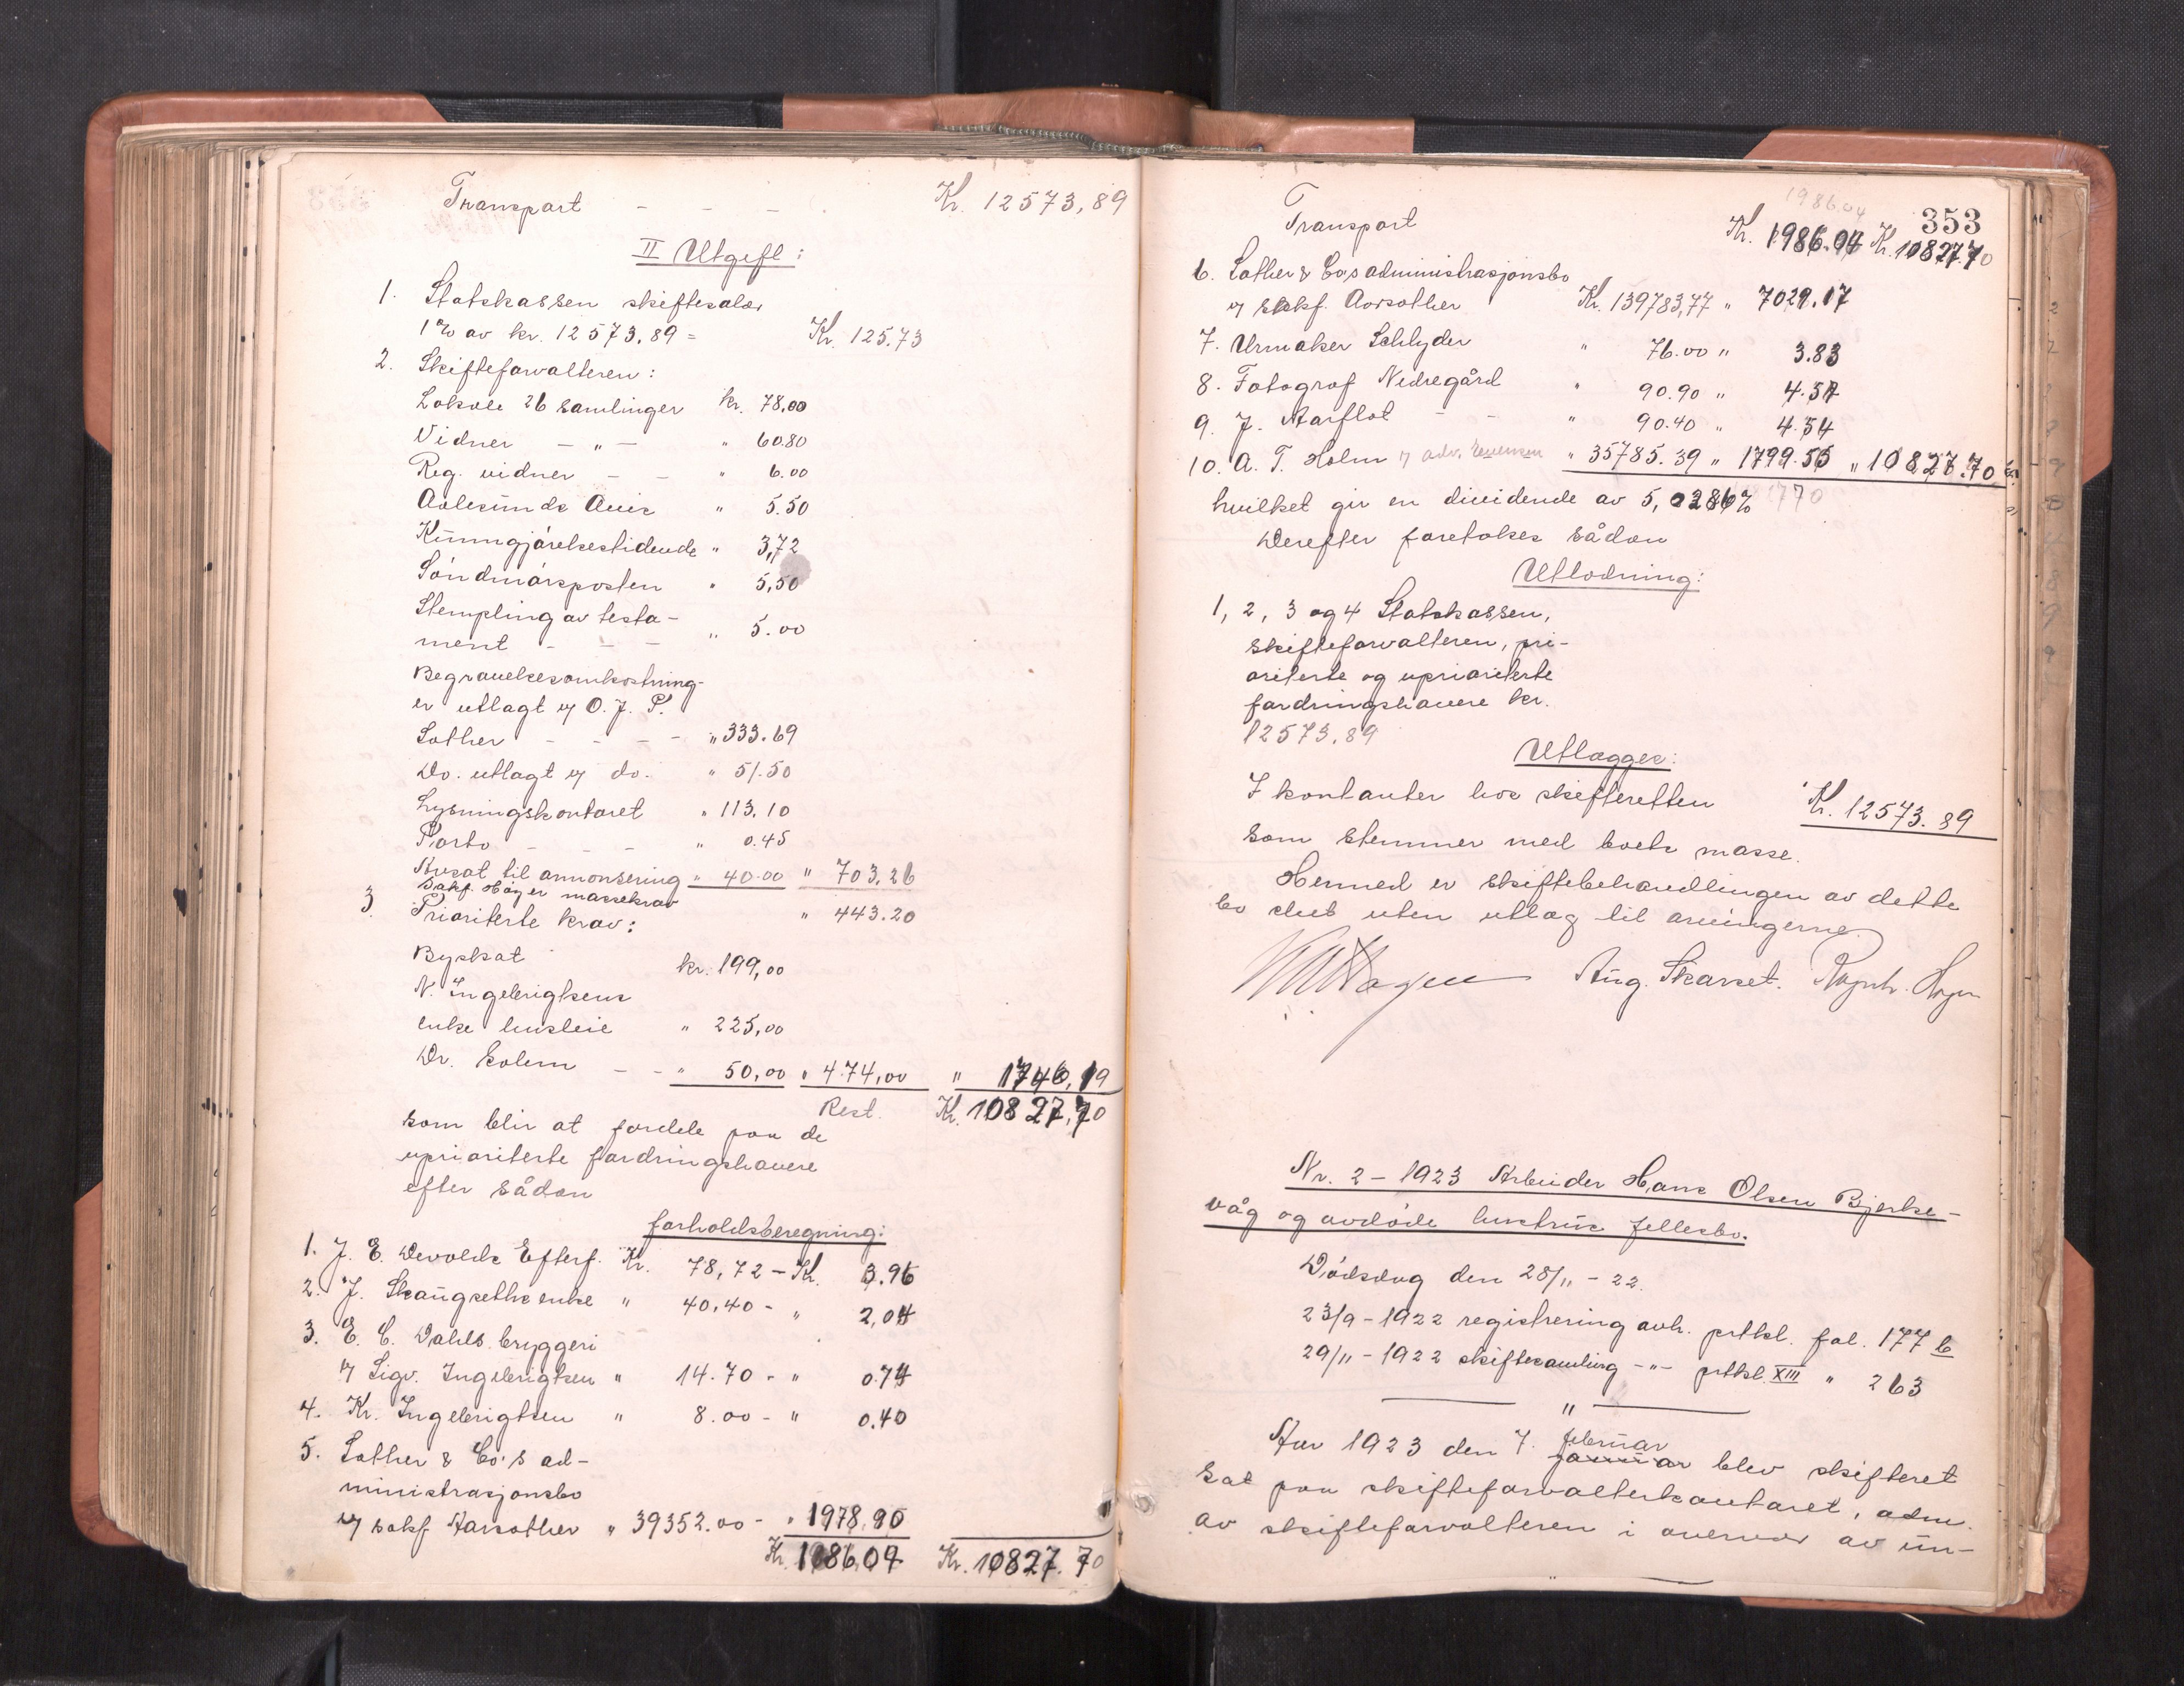 Transport - - - Kr. 12573,89
II Utgift:
1. Statskassen skiftesalær
1% av kr. 12573.89 = Kr. 125.73
2. Skifteforvalteren:
Lokale 26 samlinger kr. 78,00
Vidner - " - " 60.80
Reg. vidner - - " 6.00
Aalesunds Avis " 5.50
Kunngjørelsestidende " 3,72
Søndmørsposten " 5,50
Stempling av testa-
ment - - - " 5.00
Begravelsesomkostning-
er utlagt v/ O. J. P.
Sother - - - - " 333.69
Do. utlagt v/ do. " 51.50
Lysningskontoret " 113.10
Porto - - - " 0.45
Avsat til annonsering " 40.00 " 703,26
Sakf. Høyer massekrav " 443.20
3. Prioriterte krav:
Byskat kr. 199,00
N. Ingebrigtsens
enke husleie " 225,00
Dr. Holm - - " 50,00 " 474,00 " 1746,19
Rest. Kr. 10827,70
som blir at fordele paa de
uprioriterte fordringshavere
efter sådan
forholdsberegning:
1. J. E. Devolds Efterf. Kr. 78,72 - Kr. 3.96
2. J. Skaugseths enke " 40,40 - " 2,04
3. E. C. Dahls bryggeri
v/ Sigv. Ingebrigtsen " 14.70 - " 0.74
4. Kr. Ingebrigtsen " 8.00 - " 0.40
5. Sother & Co's ad-
ministrasjonsbo
v/ sakf. Aarsother " 39352.00 - " 1978.90
Kr. 1986,04 Kr. 10827.70
1986.04
353
Transport Kr. 1986.04 Kr. 10827.70
6. Sother & Co's administrasjonsbo
v/ sakf. Aarsother Kr. 139783,77 " 7029.17
7. Urmaker Schlyder " 76.00 " 3.83
8. Fotograf Nedregård " 90.90 " 4.57
9. J. Aarflot - - " 90.40 " 4.54
10. A. T. Holm v/ adv. " 35785.39 " 1799.55 " 10827.70
hvilket gir en dividende av 5,0286%
Derefter foretokes sådan
Utlodning:
1, 2, 3 og 4 Statskassen,
skifteforvalteren, pri-
oriterte og uprioriterte
fordringshavere kr.
12573,89
Utlægges:
I kontanter hos skifteretten Kr. 12573.89
som stemmer med boets masse.
Hermed er skiftebehandlingen av dette
bo slut uten utlæg til arvingerne.
Aug. Skarset.
Nr. 2 - 1923 Arbeider Hans Olsen Bjerke-
våg og avdøde hustrus fellesbo.
Dødsdag den 28/11 - 22.
23/9 - 1922 registrering avh. prtkl. fol. 177 b
29/11 - 1922 skiftesamling - " - prtkl. XIII " 263
"
Aar 1923 den 7. februar
januar blev skifteret
sat paa skifteforvalterkontoret, adm.
av skifteforvalteren i overvær av un-